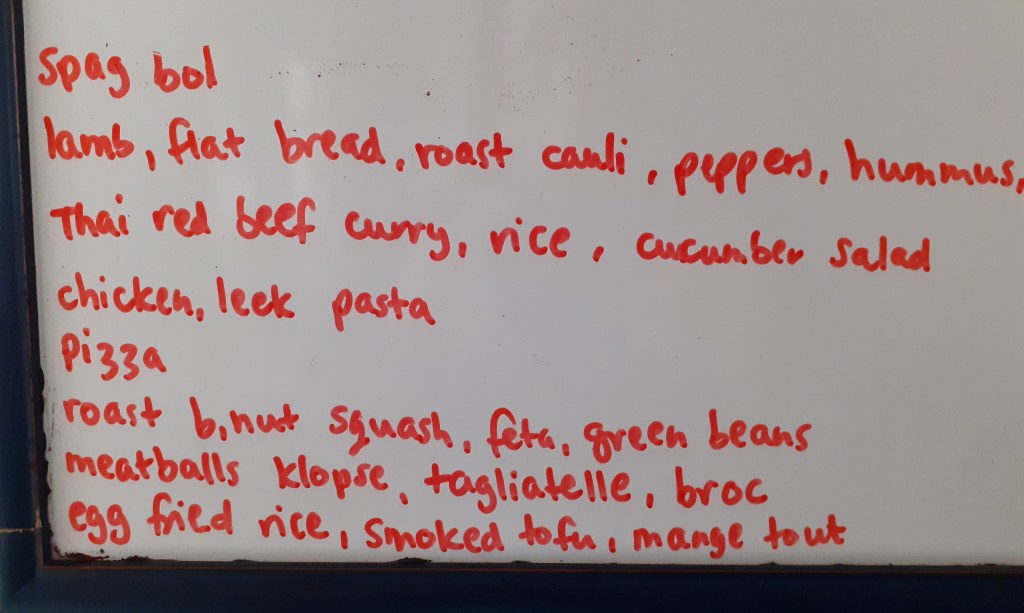 spag bol
lamb, flat bread, roast cauli, peppers, hummus,
Thai red beef curry, rice, cucumber salad
chicken, leek pasta
pizza
roast b,nut squash, feta, green beans
meatballs klopse, tagliatelle, broc
egg fried rice, smoked tofu, mange tout